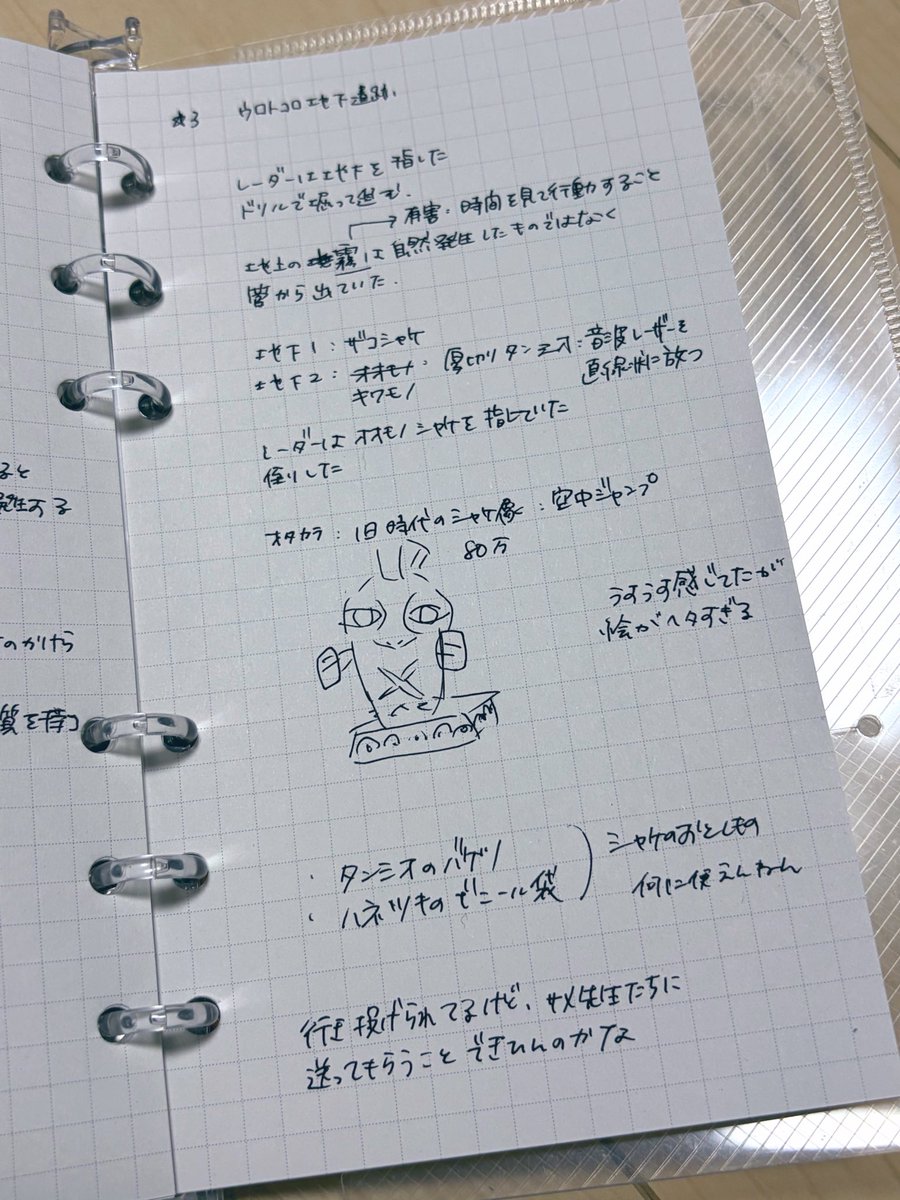 #3 ウロトコロ地下遺跡.
レーダーは地下を指した
ドリルで掘って進む.
→有害. 時間を見て行動すること
地上の霧は自然発生したものではなく
管から出ていた.
地下1: ザコシャケ
地下2: オオモノ: 厚切りタンシオ: 音波レーザーを
キワモノ 直線状に放つ
レーダーはオオモノシャケを指していた
倒した
オタカラ: 旧時代のシャケ像: 空中ジャンプ
80万
うすうす感じてたが
絵がヘタすぎる
・タンシオのバケツ
・ハネツキのビニール袋
シャケのおとしもの
何に使えんねん
行き投げられてるけど、サメ先生たちに
送ってもらうことできひんのかな
ると
発生する
のかけら
質を持つ